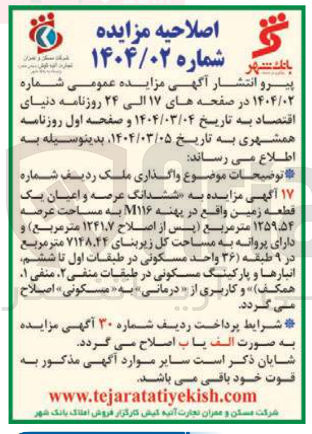 اصلاحیه مزایده
شماره ۱۴۰۴/۰۲
بانک شهر
شرکت مسکن و عمران
تجارت آتیه کیش
پیرو انتشار آگهی مزایده عمومی شماره
۱۴۰۴/۰۲ در صفحه های ۱۷ الی ۲۴ روزنامه دنیای
اقتصاد به تاریخ ۱۴۰۴/۰۳/۰۴ و صفحه اول روزنامه
همشهری به تاریخ ۱۴۰۴/۰۳/۰۵، بدینوسیله به
اطلاع می رساند:
توضیحات موضوع واگذاری ملک ردیف شماره
۱۷ آگهی مزایده به «ششدانگ عرصه و اعیان یک
قطعه زمین واقع در پهنه M۱۱۶ به مساحت عرصه
۱۲۵۹.۵۴ مترمربع (پس از اصلاح ۱۲۴۱.۷ مترمربع) و
دارای پروانه به مساحت کل زیربنای ۷۱۴۸.۴۴ مترمربع
در ۹ طبقه (۳۶ واحد مسکونی در طبقات اول تا ششم،
انبارها و پارکینگ مسکونی در طبقات منفی۲، منفی۱،
همکف)» و کاربری از «درمانی» به «مسکونی» اصلاح
می گردد.
شرایط پرداخت ردیف شماره ۳۰ آگهی مزایده
به صورت الف یا ب اصلاح می گردد.
شایان ذکر است سایر موارد آگهی مذکور به
قوت خود باقی می باشد.
www.tejaratatiyekish.com
شرکت مسکن و عمران تجارت آتیه کیش کارگزار فروش املاک بانک شهر